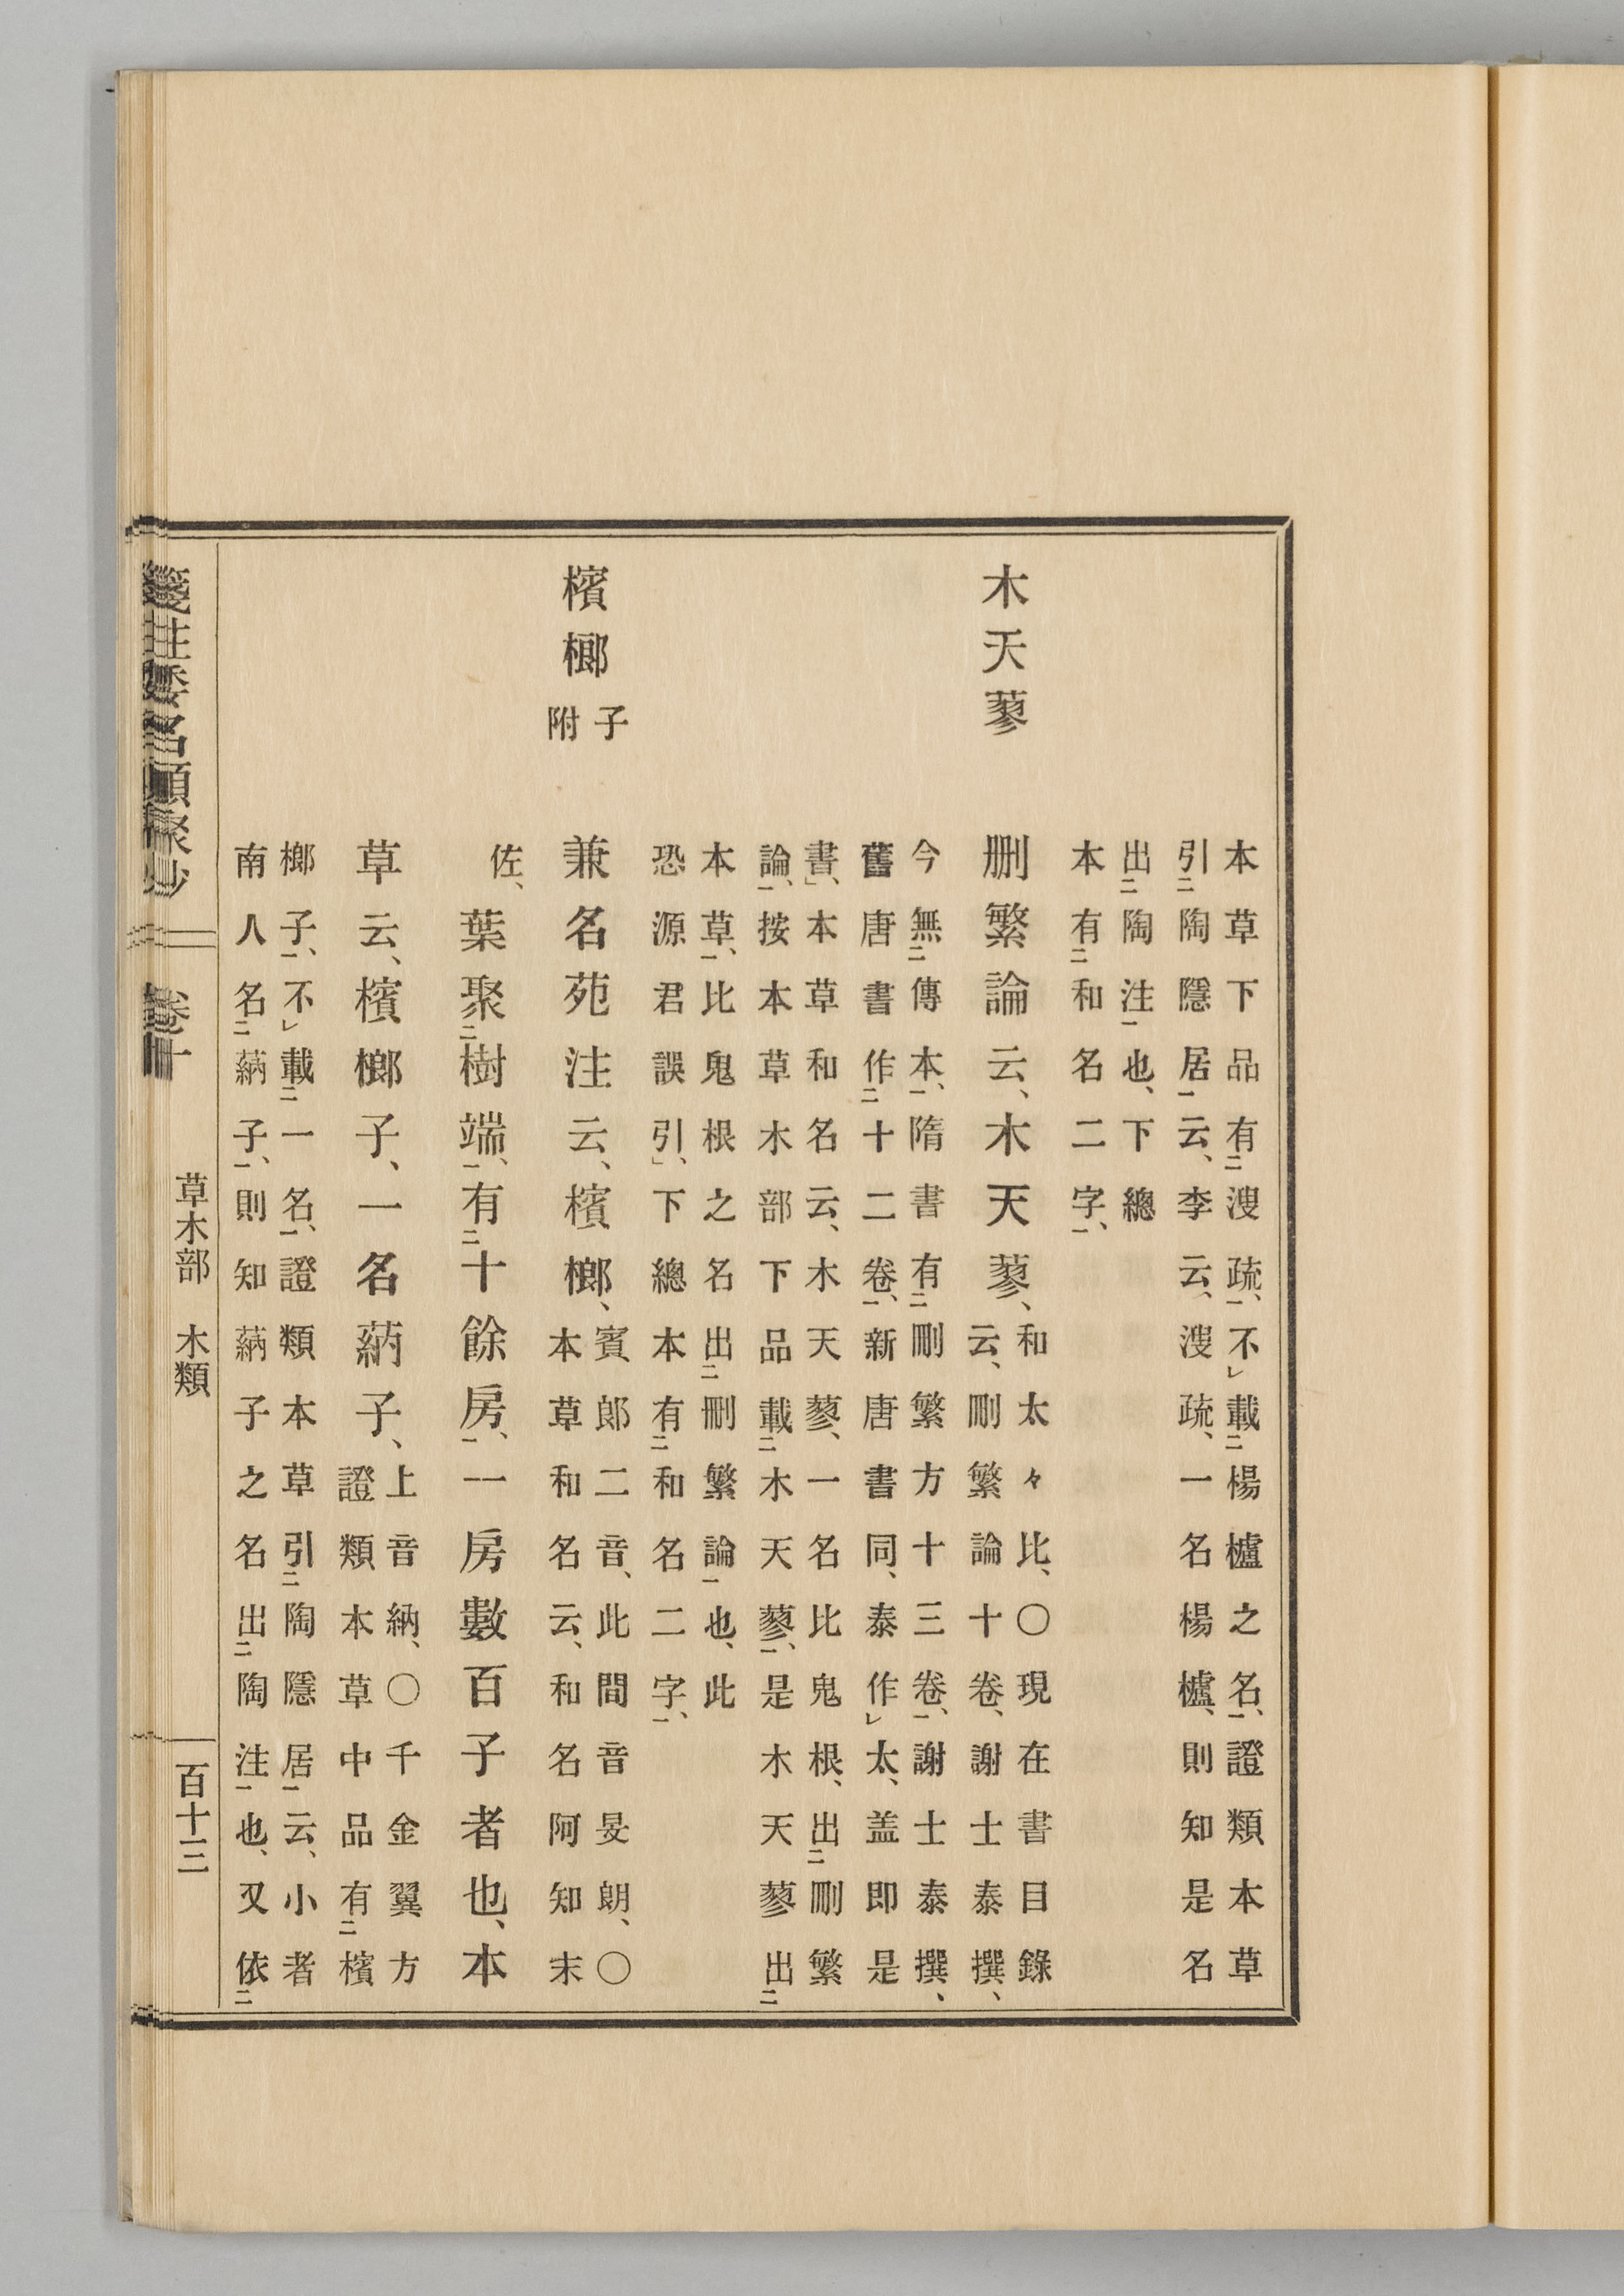 本草下品有㆓溲疏㆒、不㆑載㆓楊櫨之名㆒、證類本草
引㆓陶隱居㆒云、李云、溲疏、一名楊櫨、則知是名
出㆓陶注㆒也、下總
本有㆓和名二字㆒、
木天蓼
刪繁論云、木天蓼、
和太々比、〇現在書目錄
云、刪繁論十卷、謝士泰撰、
今無㆓傳本㆒、隋書有㆓刪繁方十三卷㆒、謝士泰撰、
舊唐書作㆓十二卷㆒、新唐書同、泰作㆑太、盖即是
書」、本草和名云、木天蓼、一名比鬼根、出㆓刪繁
論㆒、按本草木部下品載㆓木天蓼㆒、是木天蓼出㆓
本草㆒、比鬼根之名出㆓刪繁論㆒也、此
恐源君誤引」、下總本有㆓和名二字㆒、
檳榔
子
附
兼名苑注云、檳榔、
賓郞二音、此間音旻朗、〇
本草和名云、和名阿知末
佐、
葉聚㆓樹端㆒、有㆓十餘房㆒、一房數百子者也、本
草云、檳榔子、一名蒳子、
上音納、〇千金翼方
證類本草中品有㆓檳
榔子㆒、不㆑載㆓一名㆒、證類本草引㆓陶隱居㆒云、小者
南人名㆓蒳子㆒、則知蒳子之名出㆓陶注㆒也、又依㆓
箋注倭名類聚抄
卷十
草木部　木類
百十三